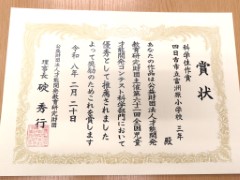 賞状
科学佳作賞
四日市市立富洲原小学校 三年
殿
あなたの作品は公益財団法人才能開発
教育研究財団主催第六十二回全国児童
才能開発コンテスト科学部門において
優秀として推薦されました
よって奨励のためこれを賞します
令和八年二月二十日
公益財団法人才能開発教育研究財団
理事長 碇 秀行